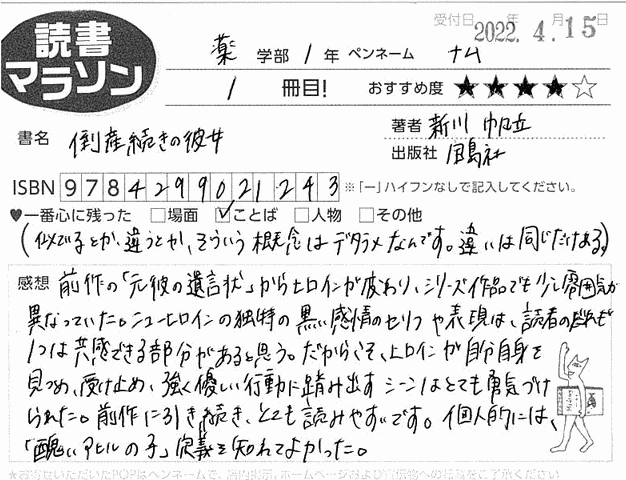 読書マラソン
受付日 2022年 4月 15日
薬 学部 1 年 ペンネーム ナム
1 冊目! おすすめ度 ★★★★☆
書名 倒産続きの彼女
著者 新川 帆立
出版社 宝島社
ISBN 9784299021243 ※「ー」ハイフンなしで記入してください。
♥一番心に残った □場面 ☑ことば □人物 □その他
(似てるとか、違うとか、そういう概念はデタラメなんです。違いは同じだけある。)
感想 前作の「元彼の遺言状」からヒロインが変わり、シリーズ作品でも少し雰囲気が
異なっていた。ニューヒロインの独特の黒い感情のセリフや表現は、読者の誰もが
1つは共感できる部分があると思う。だからこそ、ヒロインが自分自身を
見つめ、受け止め、強く優しい行動に踏み出すシーンはとても勇気づけ
られた。前作に引き続き、とても読みやすいです。個人的には、
「醜いアヒルの子」定義を知れてよかった。
★お寄せいただいたPOPはペンネームで、店内掲示、ホームページおよび宣伝物への掲載をご了承ください